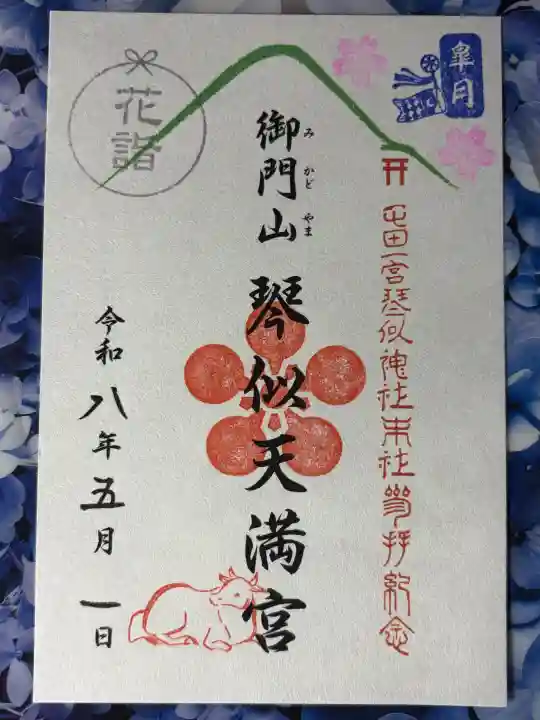 皐月
屯田一宮琴似神社末社参拝紀念
御門山
み かど やま
琴似天満宮
花詣
令和八年五月一日